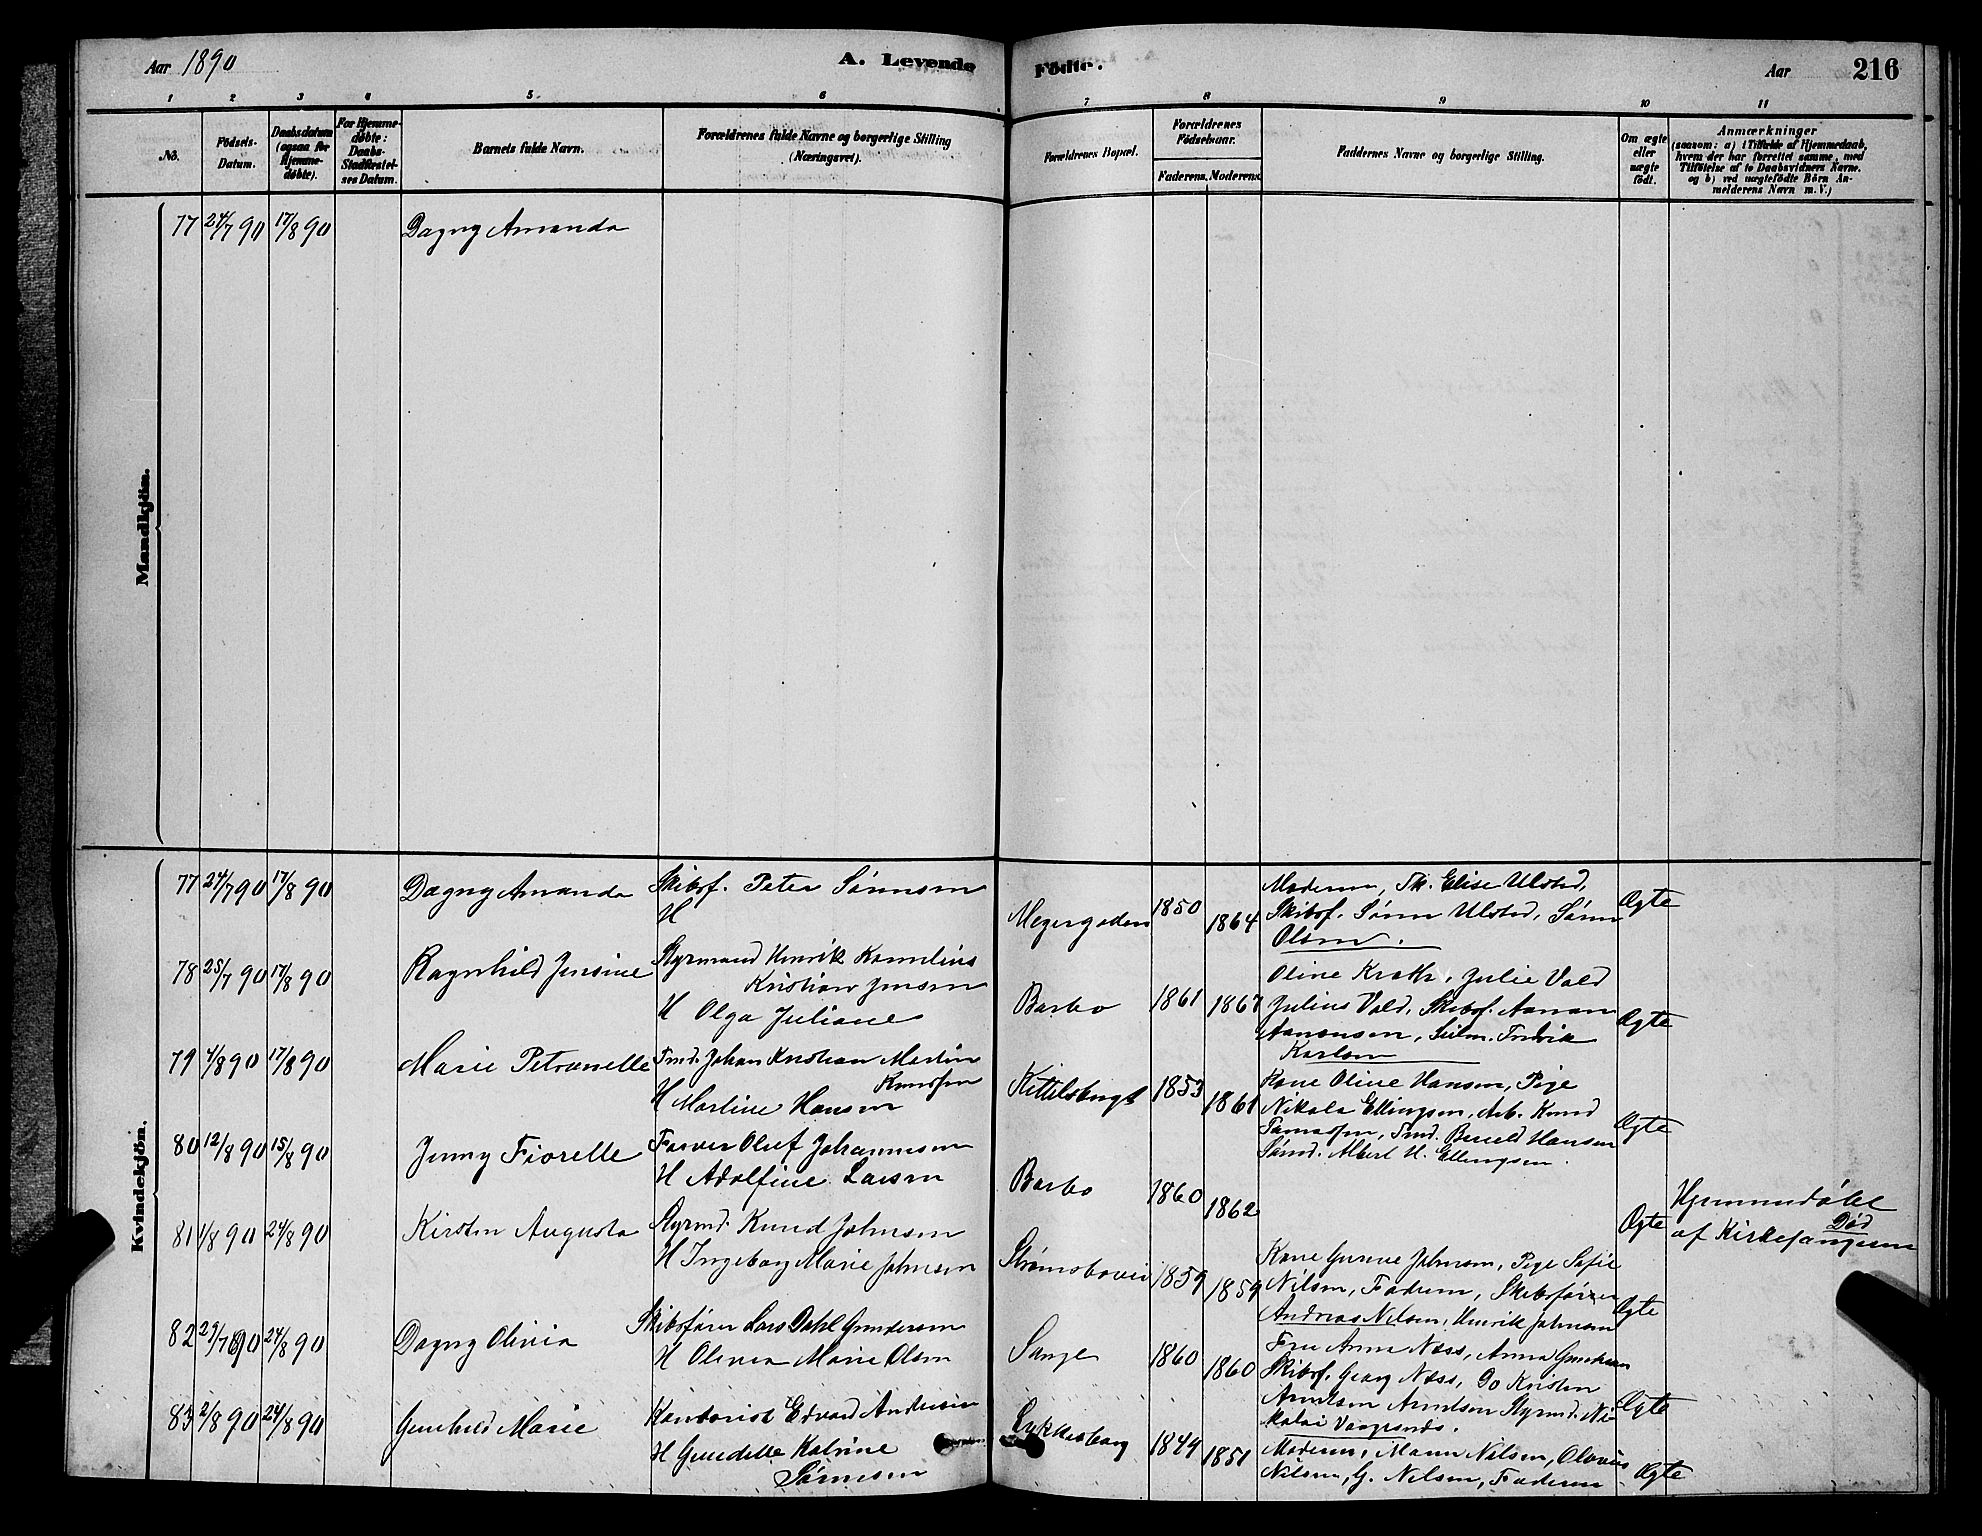 Aar 1890
A. Levende
Födte.
Aar
216
1 2 3 4 5 6 7 8 9 10 11
No.
Födsels-
Datum.
Daabsdatum
(ogsaa for
Hjemme-
døbte).
For Hjemme-
døbte:
Daabs-
Stadfæstel-
ses Datum.
Barnets fulde Navn.
Forældrenes fulde Navne og borgerlige Stilling
(Næringsvei).
Forældrenes Bopæl.
Forældrenes
Födselsaar.
Faderens. Moderens.
Faddernes Navne og borgerlige Stilling.
Om ægte
eller
uægte
födt.
Anmærkninger
(saasom: a) i Tilfælde af Hjemmedaab,
hvem der har forrettet samme, med
Tilföielse af to Daabsvidners Navne.
og b) ved uægtefödte Börn An-
melderens Navn m. V.)
Mandkjön.
77 24/7 90 17/8 90 Dagny Amanda
Kvindekjön.
77 24/7 90 17/8 90 Dagny Amanda
Skibsf. Peter Sørensen
H
1850 1864
Moderen, Elise Ulsted,
Skibsf. Sören Ulsted, Sören
Olsen.
Ægte
78 25/7 90 17/8 90 Ragnhild Jensine
Styrmand Henrik Kornelius
Kristian Jensen
H Olga Juliane
Barbo 1861 1867
Oline Julie Vold
Julius Vold, Skibsf. Aanon
Aanonsen, Fredrik
Karlsen
Ægte
79 4/8 90 17/8 90 Marie Petronelle
Tmd. Johan Kristian Martin
Knudsen
H Martine Hansen
Kittelsbugt 1853 1861
Kone Oline Hansen, Pige
Nikola Ellingsen, Arb. Knud
Tmd. Hansen
Sømd. Albert H. Ellingsen.
Ægte
80 12/8 90 15/8 90 Jenny Fiorelle
Farver Oluf Johannesen
H Adolfine Larsen
Barbo 1860 1862
Ægte
Hjemmedøbt
Død
af Kirkesangeren
81 1/8 90 24/8 90 Kirsten Augusta
Styrmd. Knud Johnsen
H Ingeborg Marie Johnsen
Strømsboveien 1859 1859
Kone Gunne Johnsen, Pige Sofie
Nilsen, Faderen, Skibsfører
Andreas Nilsen, Henrik Johnsen
Ægte
82 29/7 90 24/8 90 Dagny Olivia
Skibsfører Lars Dahl Gundersen
H Olivia Marie Olsen
Sange 1860 1860
Fru Anna Næss, Anna Gundersen
Skibsf. Georg Næss, Do Kristen
Arntsen Arntsen Styrmd. Ni-
kolai
Ægte
83 2/8 90 24/8 90 Gunhild Marie
Kontorist Edvard Andersen
H Gundelle Katrine
Sørensen
Lykkesborg 1849 1851
Moderen, Nilsen, Olavus
Nilsen, G. Nilsen, Faderen
Ægte